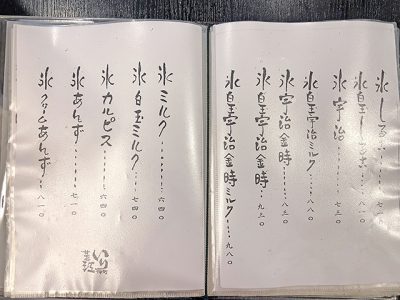 氷しるこ
氷白玉しるこ
氷宇治
氷白玉宇治ミルク……八八〇
氷宇治金時……八三〇
氷白玉宇治金時…九三〇
氷白玉宇治金時ミルク…九八〇
氷ミルク……六四〇
氷白玉ミルク…七四〇
氷カルピス……六四〇
氷あんず……七一〇
氷クリームあんず…八一〇